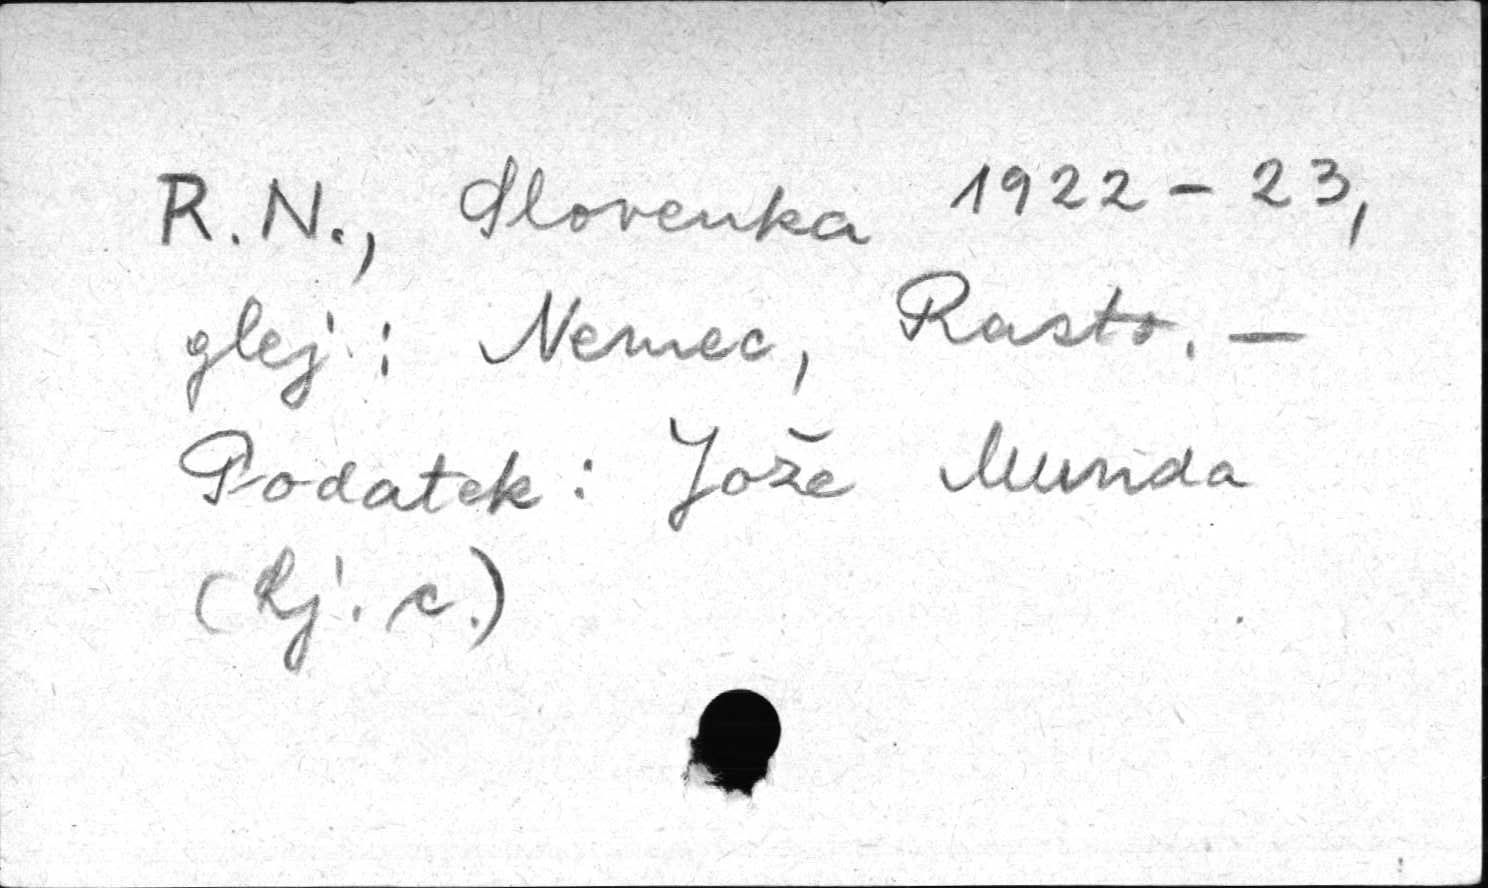 R. N., Slovenka 1922-23,
glej: Nemec, Rasto. —
Podatek: Jože Munda